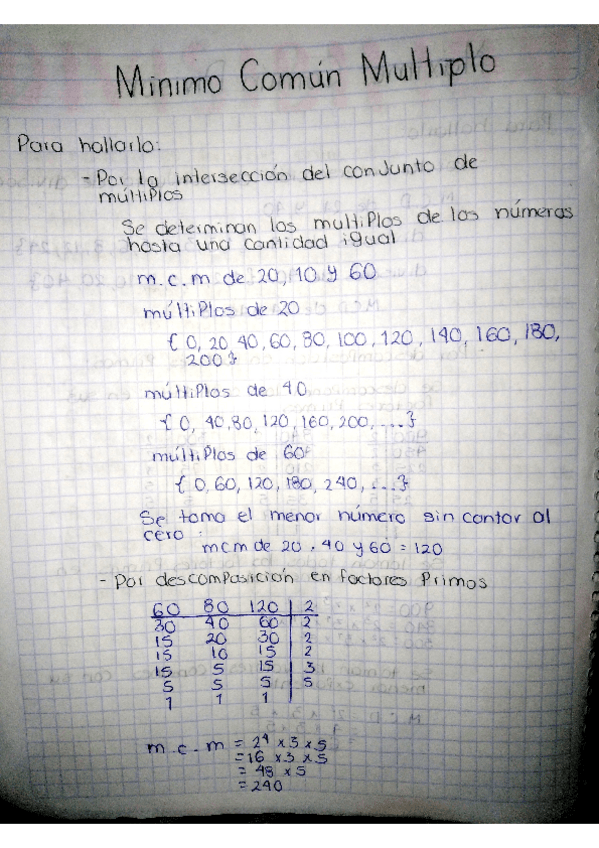 Minimo Común Multiplo
Para hallarlo:
- Por la intersección del conjunto de
múltiplos
Se determinan los multiplos de los números
hasta una cantidad igual
m.c.m de 20, 40 y 60
múltiplos de 20
{ 0, 20, 40, 60, 80, 100, 120, 140, 160, 180,
200 }
múltiplos de 40
{ 0, 40, 80, 120, 160, 200, ... }
múltiplos de 60
{ 0, 60, 120, 180, 240, ... }
Se toma el menor número sin contar al
cero :
mcm de 20, 40 y 60 = 120
- Por descomposición en factores primos
60 80 120 | 2
30 40 60 | 2
15 20 30 | 2
15 10 15 | 2
15 5 15 | 3
5 5 5 | 5
1 1 1
m.c.m = 2⁴ x 3 x 5
= 16 x 3 x 5
= 48 x 5
= 240